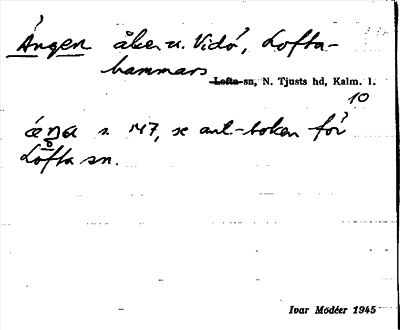 Ängen åker u. Vidö, Lofta-
hammars
Lofta-sn, N. Tjusts hd, Kalm. l.
10
s. 147, se ant.-boken för
Lofta sn.
Ivar Modéer 1945